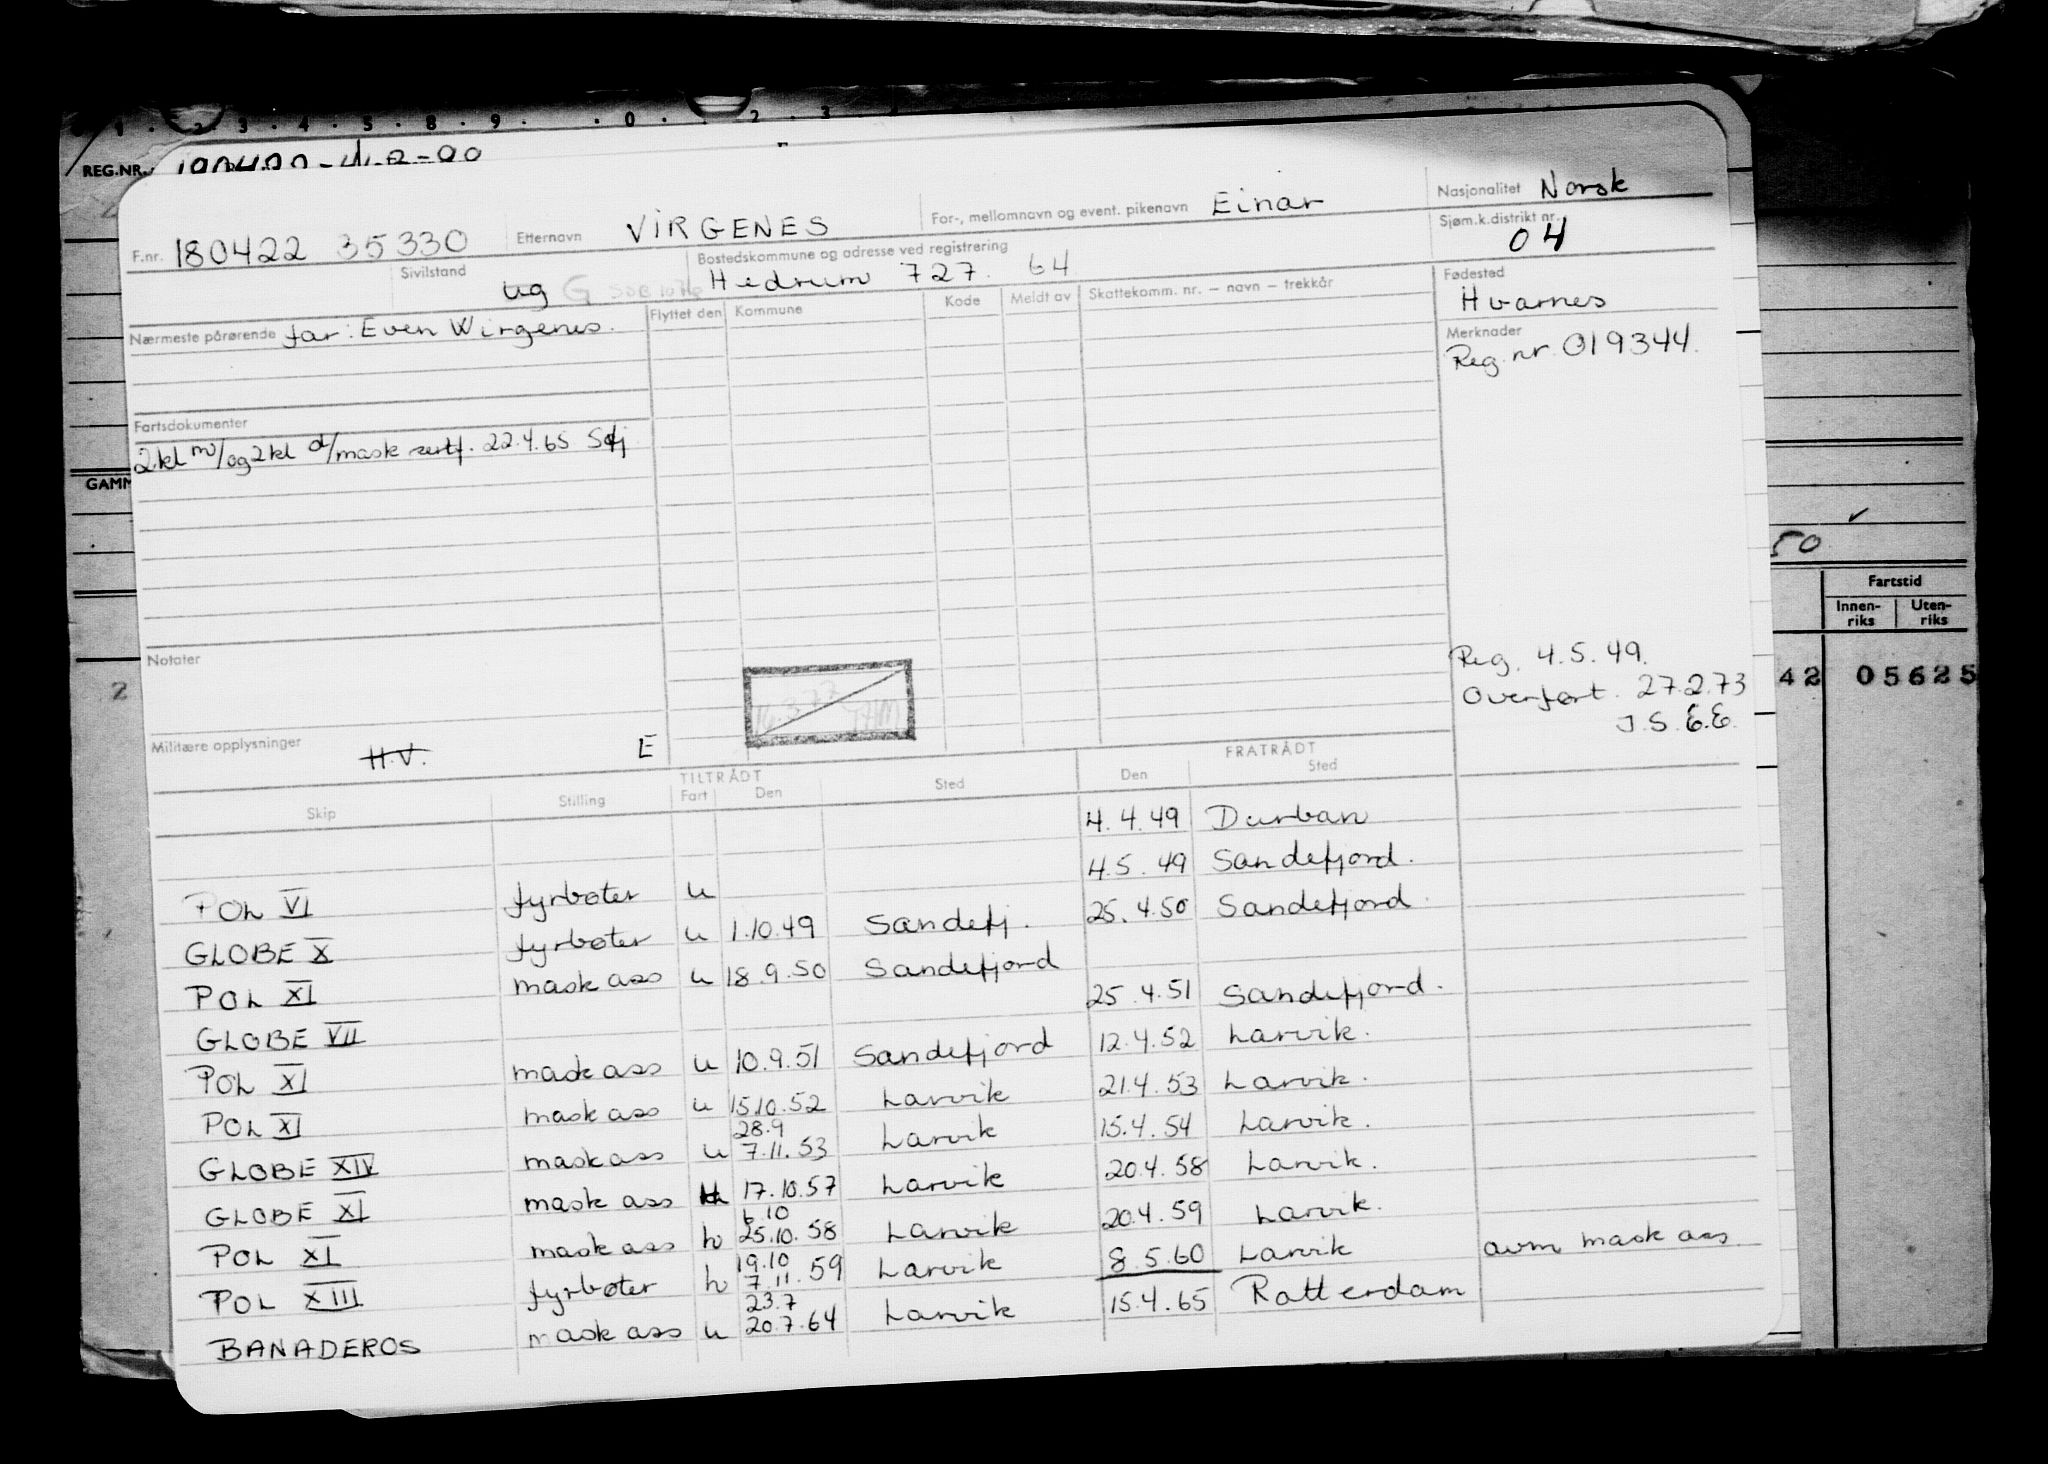 1 . 2 . 3 . 4 . 5 . 8 . 9 . . 0 . . 2 3
REG.NR.
F.nr. 180422 35330 Etternavn VIRGENES For-, mellomnavn og event. pikenavn Einar Nasjonalitet Norsk
Sjøm.k.distrikt nr. 04
Sivilstand ug G Bostedskommune og adresse ved registrering Hedrum 727. 64 Fødested Hvarnes
Nærmeste pårørende far: Even Wirgenes. Flyttet den Kommune Kode Meldt av Skattekomm. nr. – navn – trekkår
Merknader Reg. nr 019344.
Fartsdokumenter
2kl m/og 2kl d/mask sertf. 22.4.65 Sfj
GAMM
50
Fartstid
Innen-riks Uten-riks
2
42 05625
Notater
Reg. 4.5.49.
Overført. 27.2.73
J.S. E.E.
Militære opplysninger H.V. E
TILTRÅDT FRATRÅDT
Skip Stilling Fart Den Sted Den Sted
4.4.49 Durban
POL VI fyrbøter u 4.5.49 Sandefjord.
GLOBE X fyrbøter u 1.10.49 Sandefj. 25.4.50 Sandefjord
POL XI mask ass u 18.9.50 Sandefjord
GLOBE VII 25.4.51 Sandefjord.
POL XI mask ass u 10.9.51 Sandefjord 12.4.52 Larvik.
POL XI mask ass u 15.10.52 Larvik 21.4.53 Larvik.
GLOBE XIV mask ass u 28.9 7.11.53 Larvik 15.4.54 Larvik.
GLOBE XI mask ass 17.10.57 Larvik 20.4.58 Larvik.
POL XI mask ass h 6.10 25.10.58 Larvik 20.4.59 Larvik.
POL XIII fyrbøter h 19.10 7.11.59 Larvik 8.5.60 Larvik avm mask ass
BANADEROS mask ass u 23.7 20.7.64 Larvik 15.4.65 Rotterdam